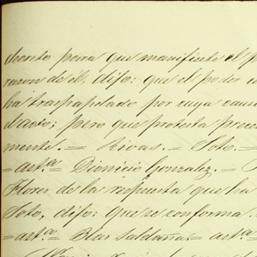 para que manifieste el p
razon de él. dijo: que el poder
ha traspapelado por cuya caus
dicto; pero que protesta prece
mente. = Rivas. = Soto. =
= ast.ª Dionicio Gonzalez. =
Flores de la respuesta que ha
Soto, dijo: que se conforma
= ast.ª Blas Saldaña = ast.ª